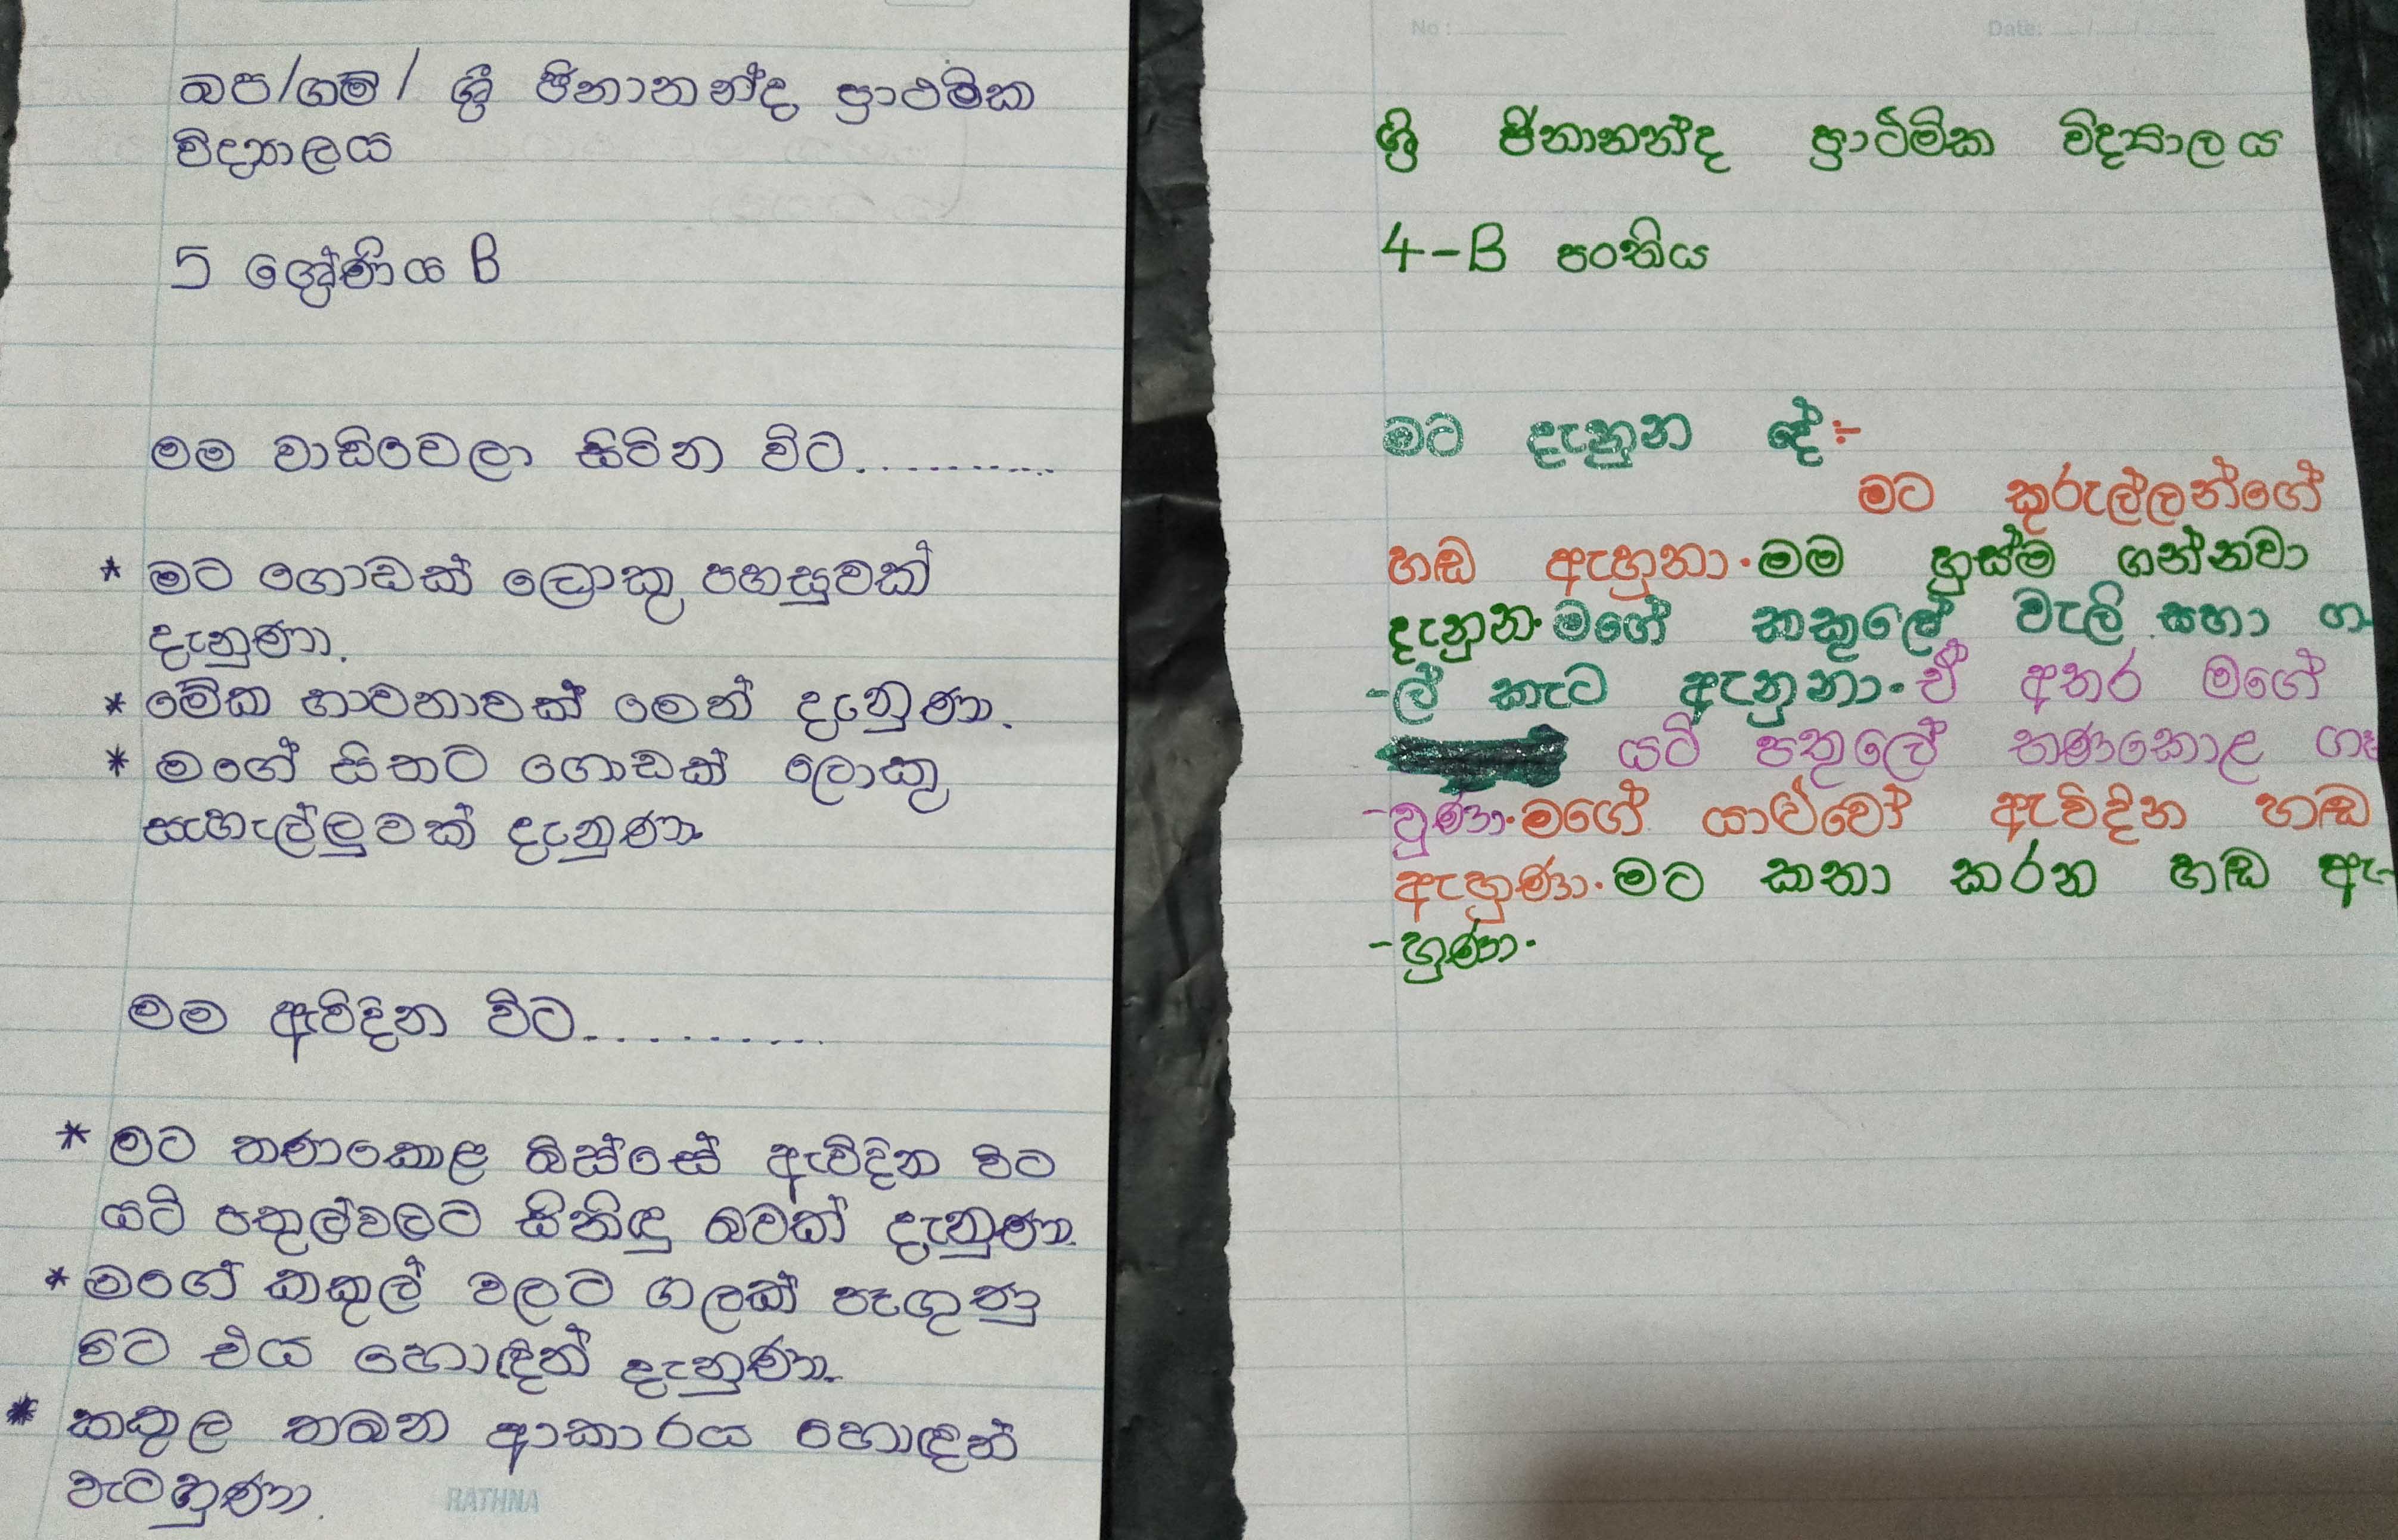 බප/ගම්/ ශ්‍රී ජිනානන්ද ප්‍රාථමික
විද්‍යාලය
5 ශ්‍රේණිය B
මම වාඩිවෙලා සිටින විට..........
* මට ගොඩක් ලොකු පහසුවක්
දැනුණා.
* මේක භාවනාවක් මෙන් දැනුණා.
* මගේ සිතට ගොඩක් ලොකු
සැහැල්ලුවක් දැනුණා.
මම ඇවිදින විට..........
* මට තණකොළ බිස්සේ ඇවිදින විට
යටි පතුල්වලට සිනිඳු බවක් දැනුණා.
* මගේ කකුල් වලට ගලක් පෑගුණු
විට එය හොඳින් දැනුණා.
* කකුල තබන ආකාරය හොඳින්
වැටහුණා.
RATHNA
No :
Date:
ශ්‍රි ජිනානන්ද ප්‍රාථමික විද්‍යාලය
4-B පංතිය
මට දැනුන දේ:-
මට කුරුල්ලන්ගේ
හඬ ඇහුනා. මම හුස්ම ගන්නවා
දැනුන. මගේ කකුලේ වැලි සහා ග
-ල් කැට ඇනුනා. ඒ අතර මගේ
යටි පතුලේ තණකොළ ගෑ
-වුණා. මගේ යාළුවෝ ඇවිදින හඬ
ඇහුණා. මට කතා කරන හඬ ඇ-
-හුණා.